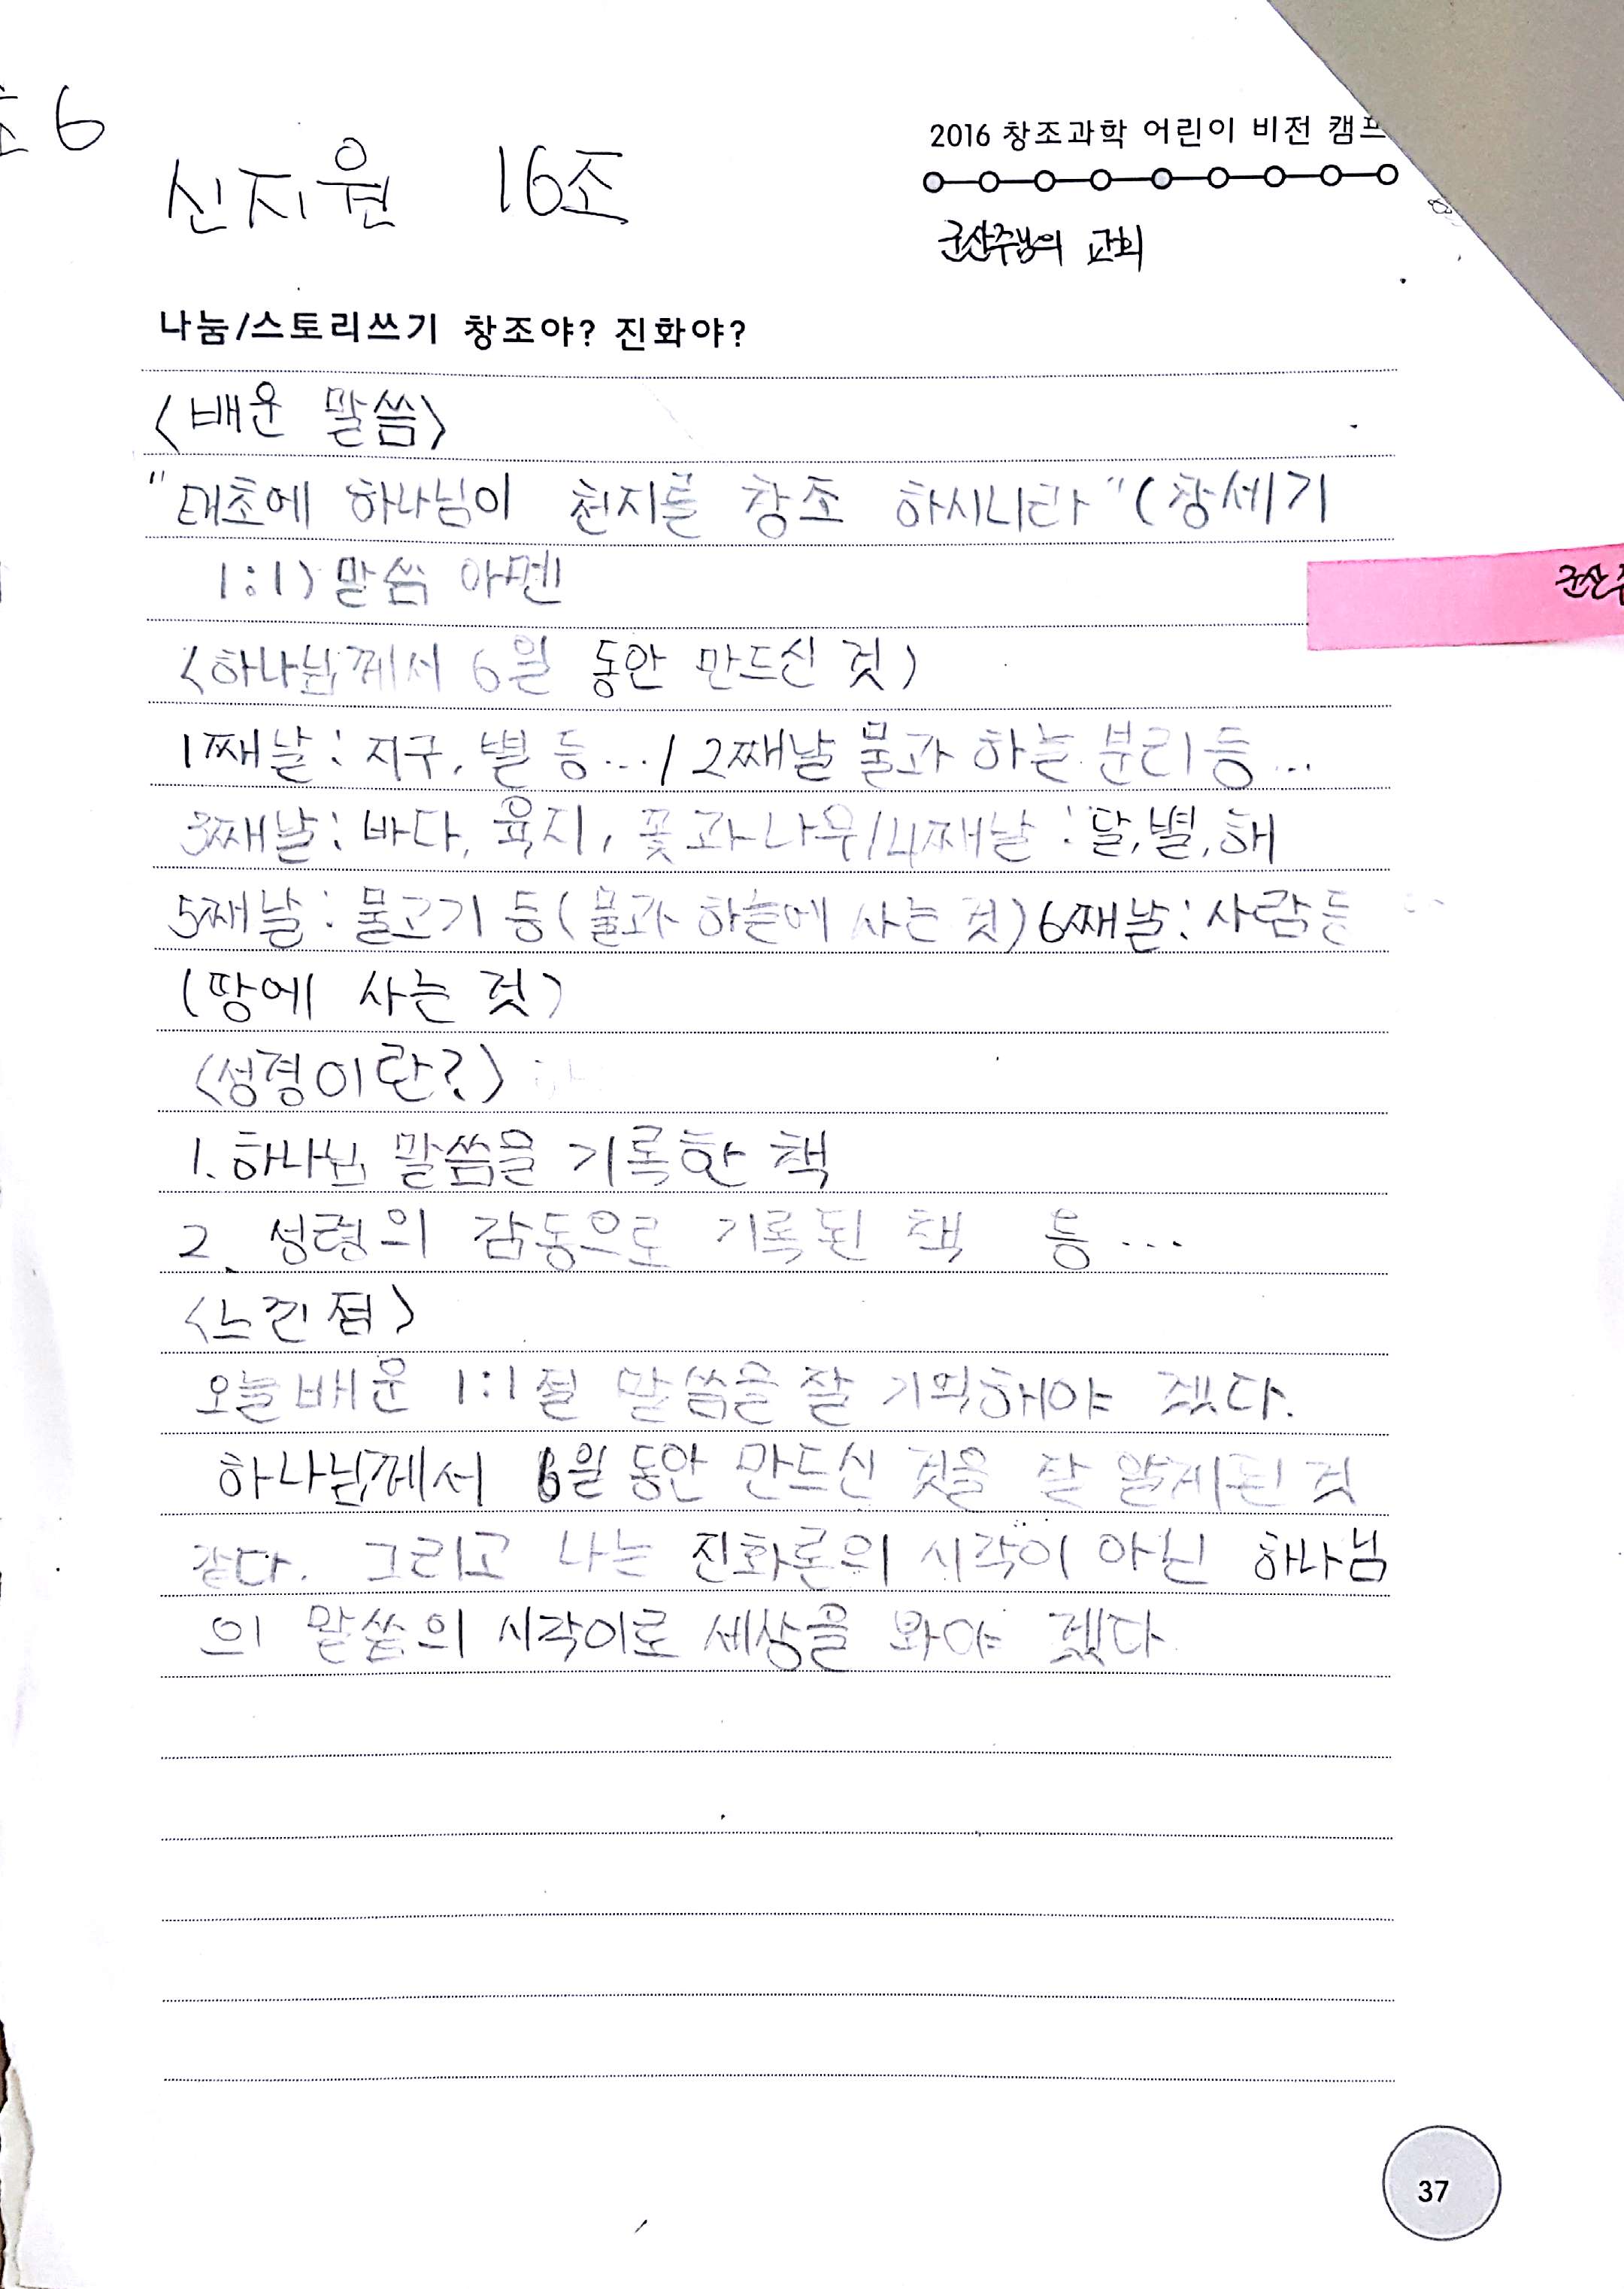 초6
2016 창조과학 어린이 비전 캠프
신지원 16조
군산주님의 교회
나눔/스토리쓰기 창조야? 진화야?
<배운 말씀>
"태초에 하나님이 천지를 창조 하시니라"(창세기
1:1) 말씀 아멘
군산주
<하나님께서 6일 동안 만드신 것>
1째날: 지구, 별 등.../ 2째날 물과 하늘 분리 등...
3째날: 바다, 육지, 꽃과 나무/4째날: 달,별,해
5째날: 물고기 등(물과 하늘에 사는 것) 6째날: 사람 등
(땅에 사는 것)
<성경이란?>
1. 하나님 말씀을 기록한 책
2. 성령의 감동으로 기록된 책 등...
<느낀점>
오늘 배운 1:1절 말씀을 잘 기억해야 겠다.
하나님께서 6일 동안 만드신 것을 잘 알게된 것
같다. 그리고 나는 진화론의 시각이 아닌 하나님
의 말씀의 시각이로 세상을 봐야 겠다
37